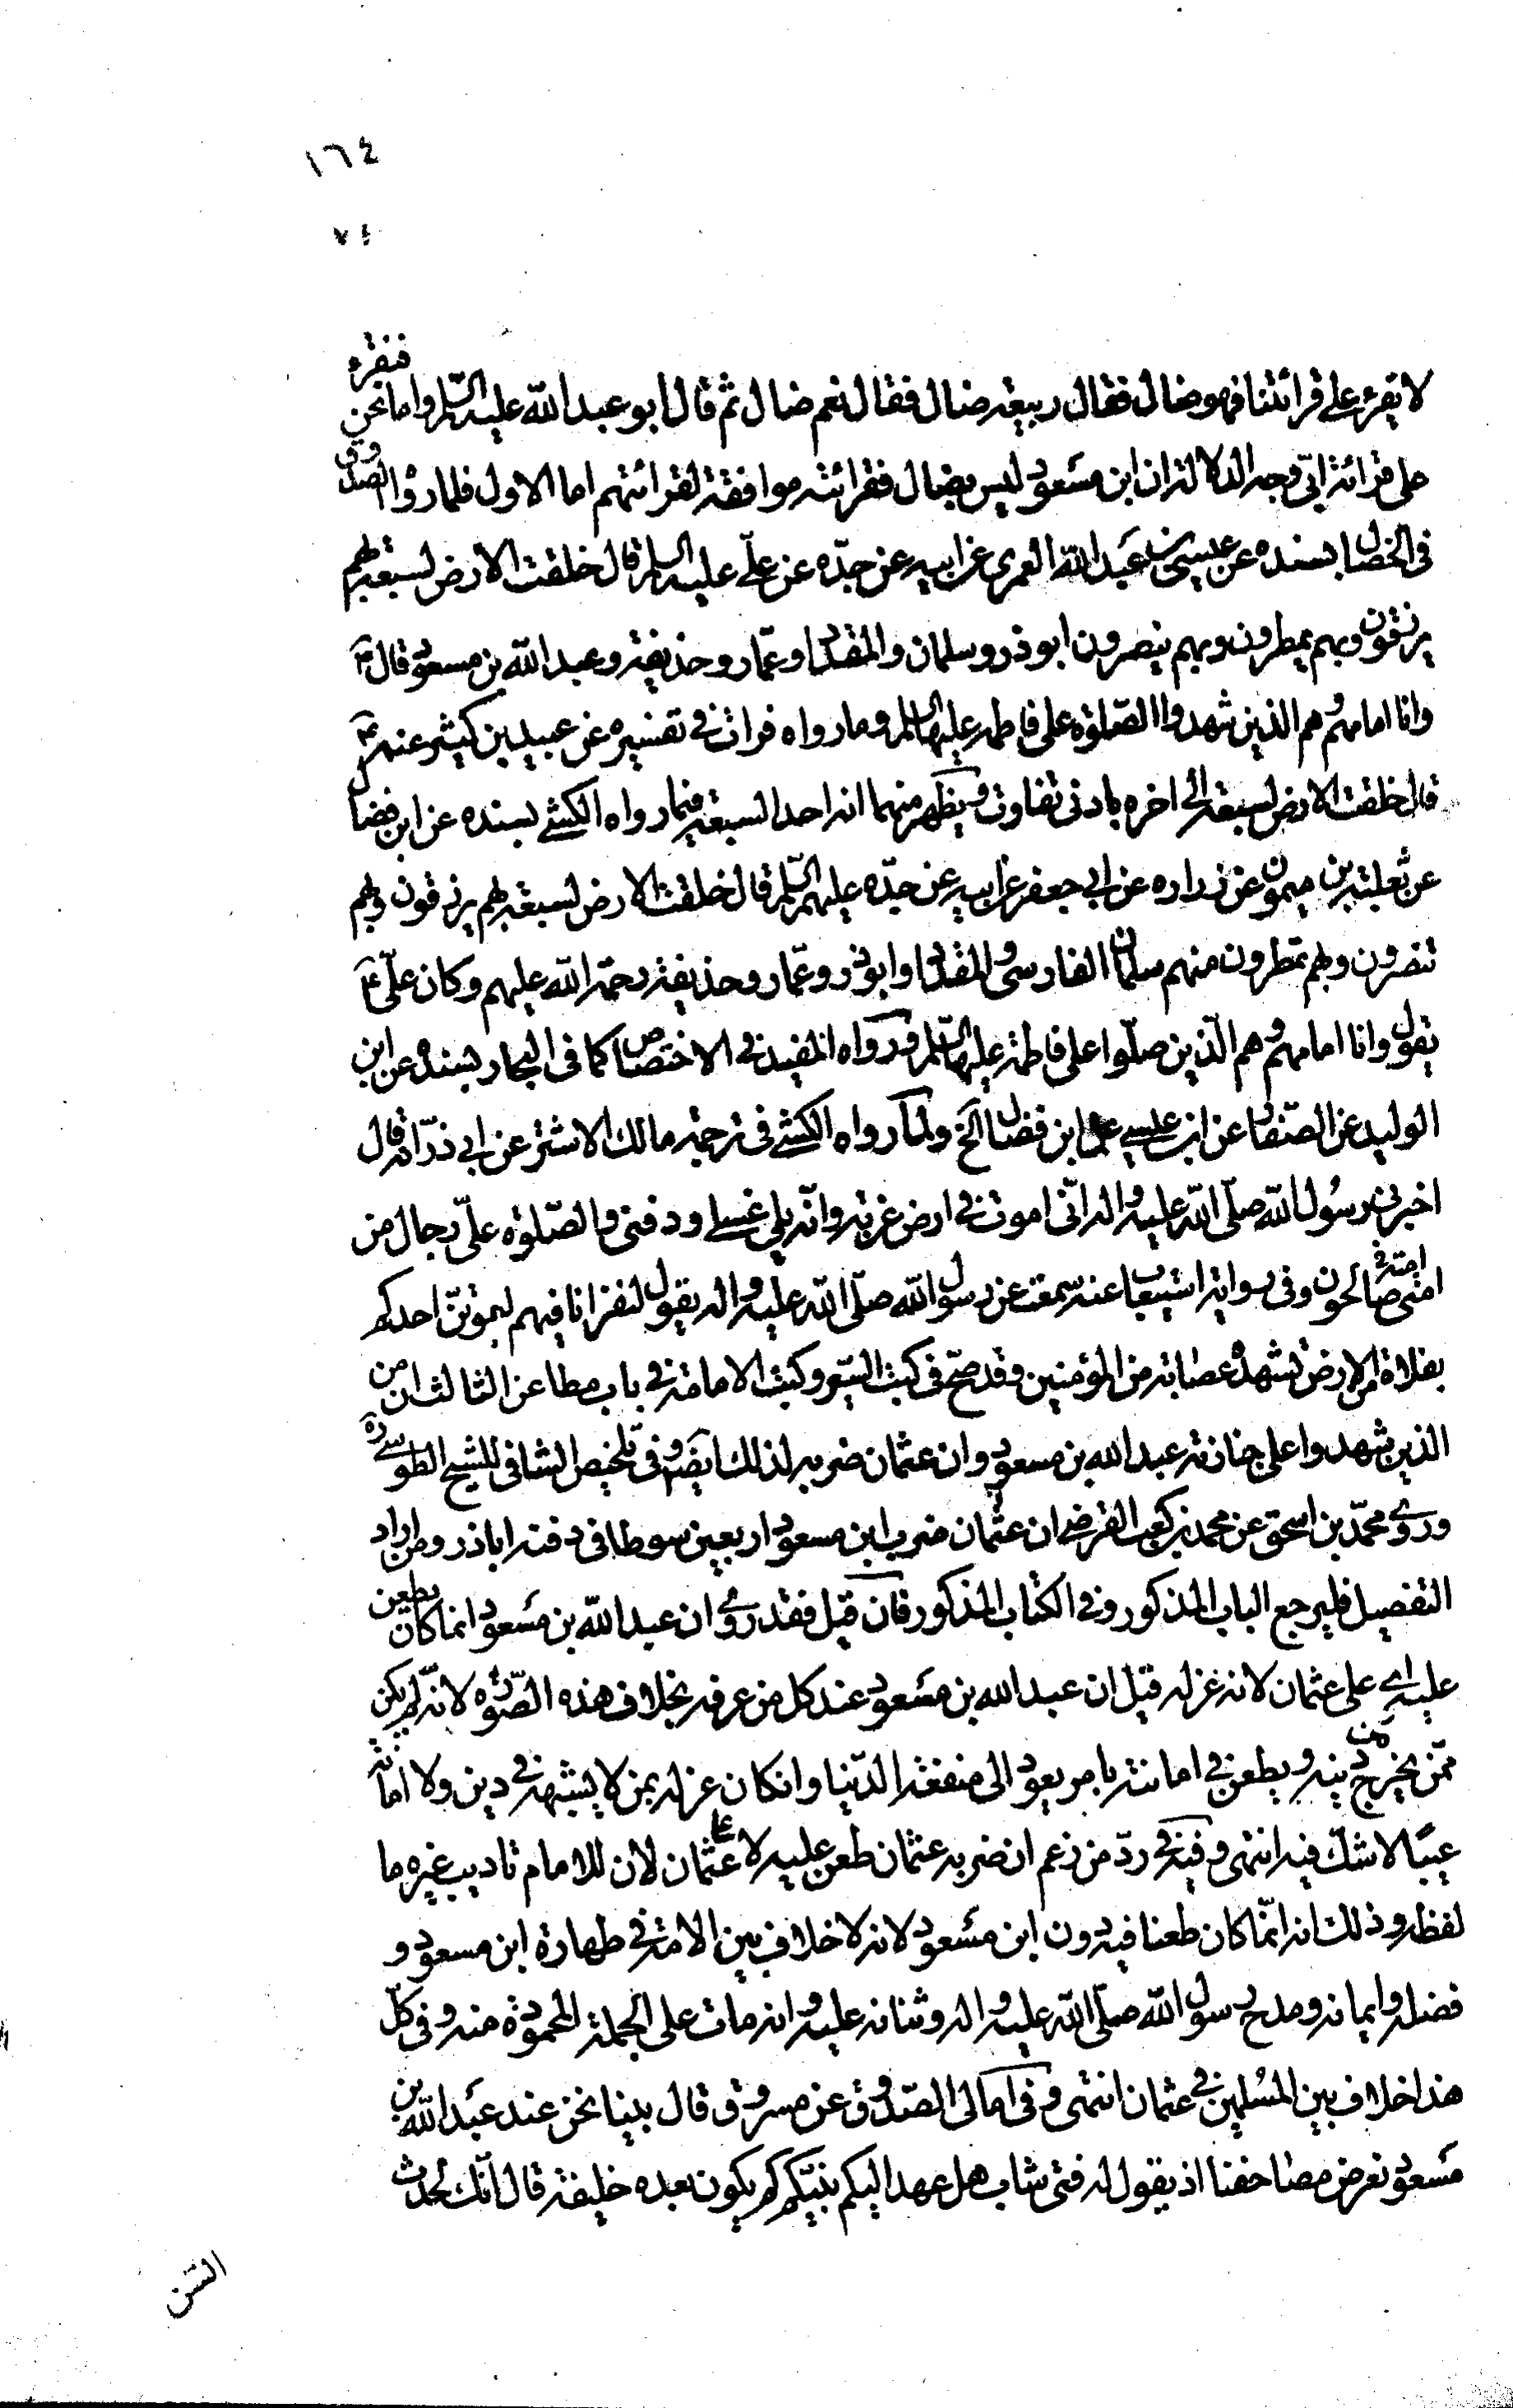 ١٦٤
٧٤
لا يقرء على قرائتنا فهو ضال فقال ربيعة ضال فقال نعم ضال ثم قال ابو عبد الله عليه السلم واما نحن فنقرء
على قرائة ابيّ وجه الدلالة ان ابن مسعود ليس بضال فقرائته موافقة لقرائتهم اما الاول فلما رواه الصدوق
فى الخصال بسنده عن عيسى بن عبد الله العمرى عن ابيه عن جدّه عن علّى عليه السلم قال خلقت الارض لسبعة بهم
يرزقون وبهم يمطرون وبهم ينصرون ابو ذر وسلمان والمقداد وعمّار وحذيفة وعبد الله بن مسعود قال ع
وانا امامهم وهم الذين شهدوا الصلوة على فاطمة عليها السلم وما رواه فرات فى تفسيره عن عبيد بن كثير عنه ع
قال خلقت الارض لسبعة الى اخره بادنى تفاوت ويظهر منهما انه احد السبعة فيما رواه الكشى بسنده عن ابن فضال
عن ثعلبة بن ميمون عن زراره عن ابى جعفر عن ابيه عن جدّه عليهم السّلم قال خلقت الارض لسبعة بهم يرزقون وبهم
تنصرون وبهم تمطرون منهم سلمان الفارسى والمقداد وابو ذر وعمّار وحذيفة رحمة الله عليهم وكان علّى ع
يقول وانا امامهم وهم الّذين صلّوا على فاطمة عليها السّلم ورواه المفيد فى الاختصاص كما فى البحار بسنده عن ابن
الوليد عن الصّفار عن ابن عيسى عن ابن فضال الخ ولما رواه الكشى فى ترجمة مالك الاشتر عن ابى ذرّ انه قال
اخبرنى رسُول الله صلّى الله عليه واله انّى اموت فى ارض غربة وانّه يلى غسلى ودفنى والصّلوة علىّ رجال من
امتى صالحون وفى رواية استيعاب عنه سمعت عن رسول الله صلّى الله عليه واله يقول لنفر انا فيهم ليموتنّ احدكم
بفلاة من الارض تشهده عصابة من المؤمنين وقد صحّ فى كتب السّير وكتب الامامة فى باب مطاعن الثالث ان من
الذين شهدوا على جنازته عبد الله بن مسعود وان عثمان ضربه لذلك ايضا وفى تلخيص الشافى للشيخ الطوسى ره
وروى محمّد بن اسحق عن محمد بن كعب القرضى ان عثمان ضرب ابن مسعود اربعين سوطا فى دفنه اباذر ومن اراد
التفصيل فليرجع الباب المذكور وفى الكتاب المذكور فان قيل فقد روى ان عبد الله بن مسعود انما كان يطعن
عليه اى على عثمان لانه عزله قيل ان عبد الله بن مسعود عند كل من عرفه بخلاف هذه الصّورة لانّه لم يكن
ممّن يخرج دينه ويطعن فى امامته بامر يعود الى منفعة الدّنيا وانكان عزله بمن لا يشبهه فى دين ولا امانة
عيبًا لا شكّ فيه انتهى وفيه فى ردّ من زعم ان ضربه عثمان طعن عليه لا على عثمان لان للامام تاديب غيره ما
لفظه وذلك انه انّما كان طعنا فيه دون ابن مسْعود لانه لا خلاف بين الامة فى طهارة ابن مسعود و
فضله وايمانه ومدح رسول الله صلّى الله عليه واله وثنائه عليه وانه مات على الجملة المحمودة منه وفى كلّ
هذا خلاف بين المسْلمين فى عثمان انتهى وفى امالى الصّدوق عن مسروق قال بينا نحن عند عبْد الله بن
مسْعود نعرض مصاحفنا اذ يقول له فتى شاب هل عهد اليكم نبيّكم كم يكون بعده خليفة قال انّك لحدث
السّن